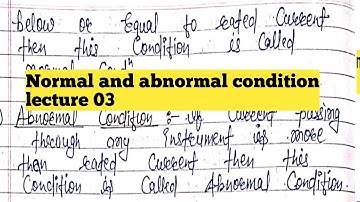 below or Equal to rated Current
then this Condition is Called
Normal and abnormal condition
lecture 03
Abnormal Condition :- If Current passing
through any Instrument is more
than rated Current then this
Condition is Called Abnormal Condition.